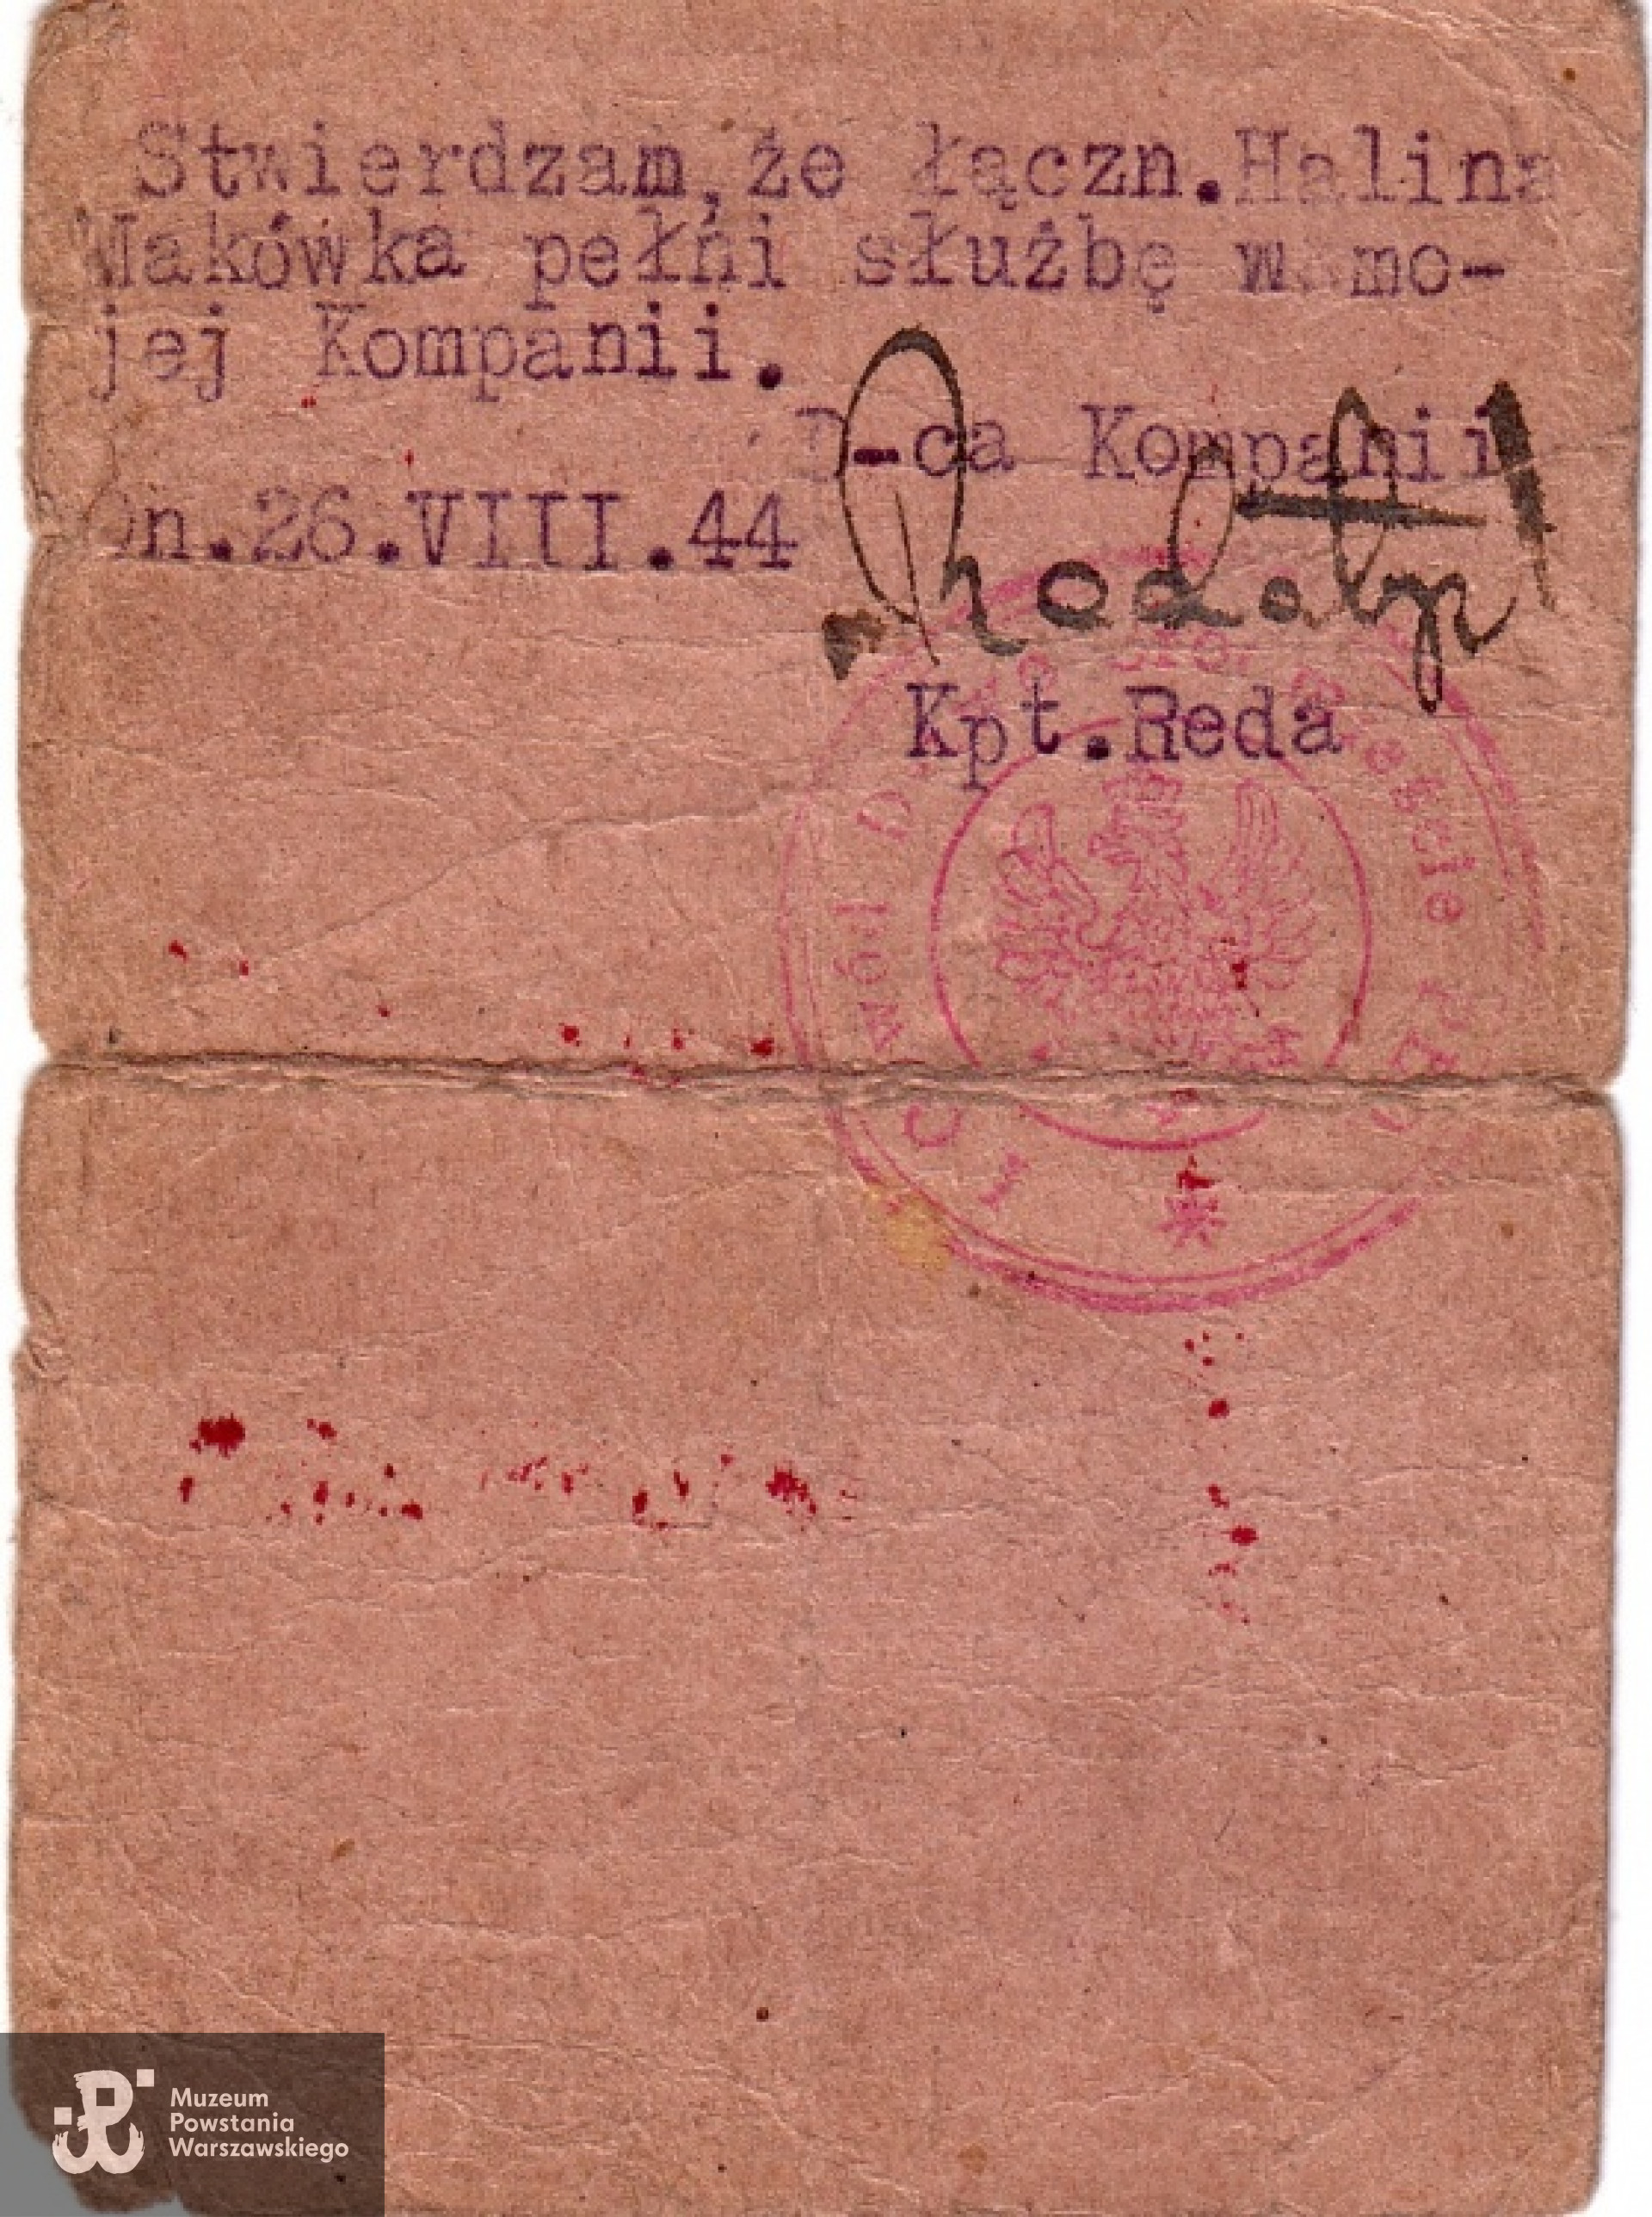 Stwierdzam, że łączn. Halina
Makówka pełni służbę w mo-
jej Kompanii.
D-ca Kompanii
Dn. 26.VIII.44
Kpt. Reda
Muzeum
Powstania
Warszawskiego